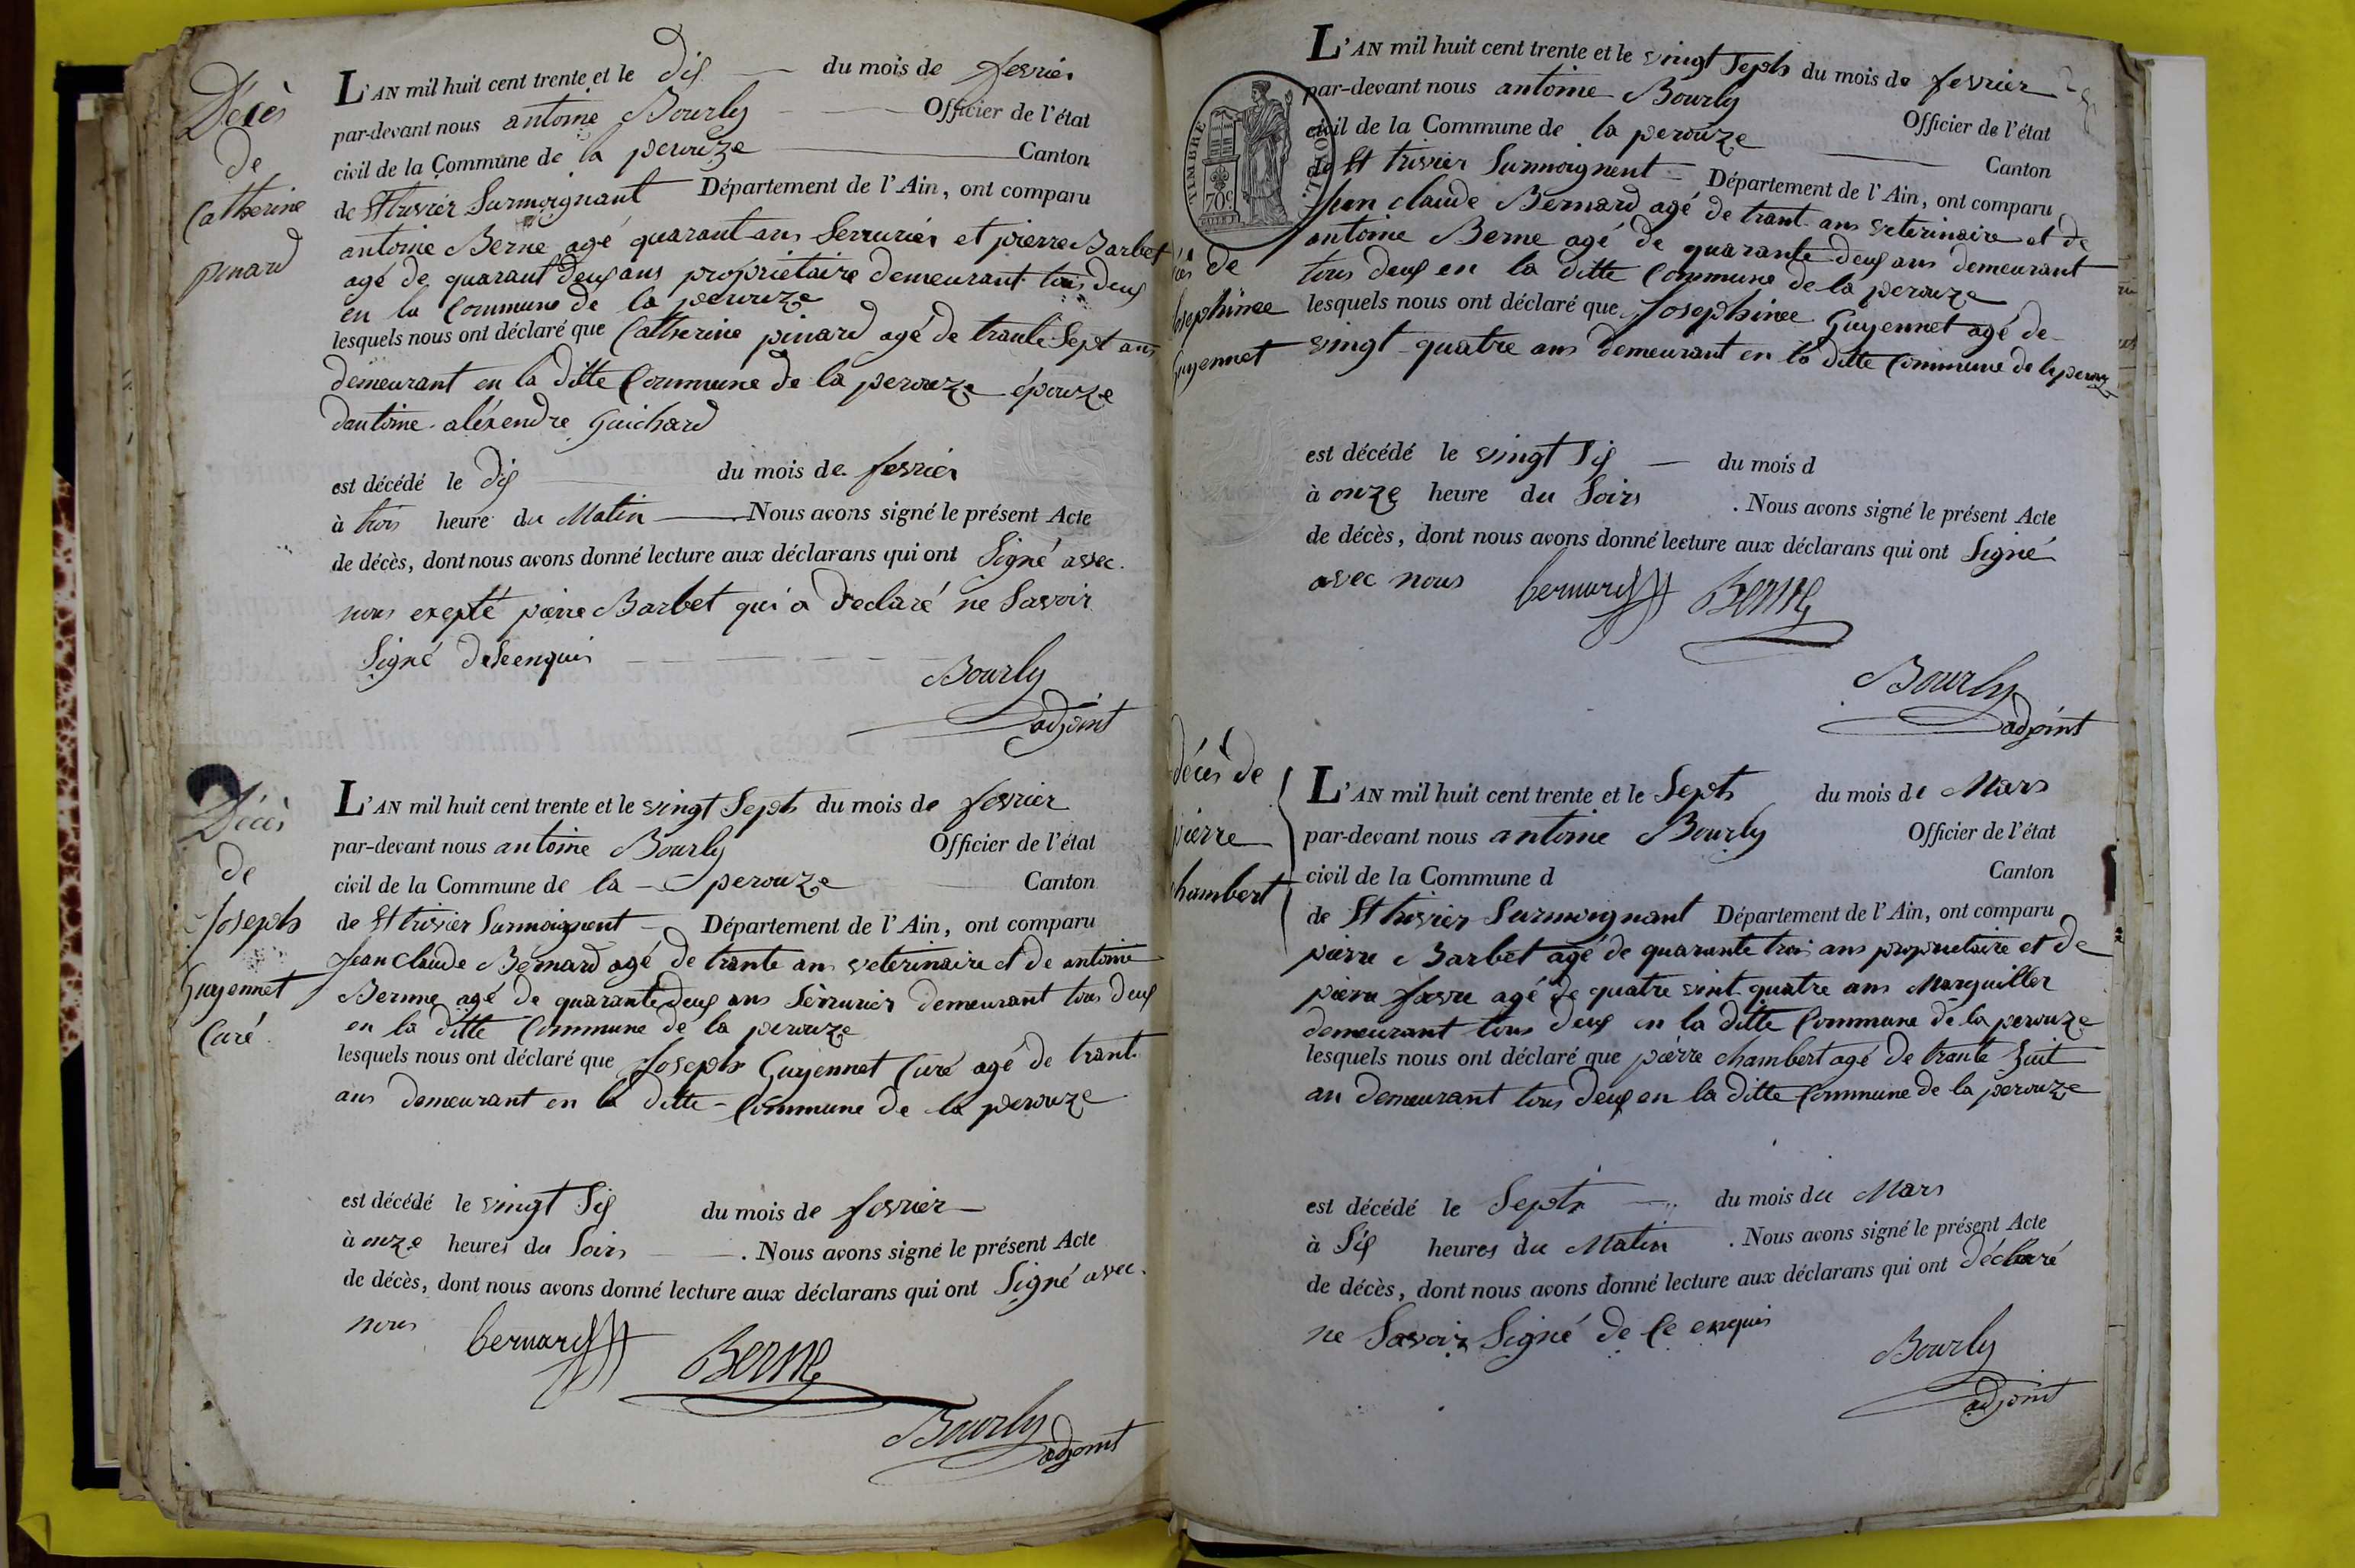 Décès
de
Catherine
pinard
L'AN mil huit cent trente et le dix du mois de fevrier
par-devant nous antoine Bourly Officier de l'état
civil de la Commune de la perouze Canton
de St trivier Surmoignant Département de l'Ain, ont comparu
antoine Berne agé quarant ans Serrurier et pierre Barbet
agé de quarant deux ans propriétaire demeurant tous deux
en la Commune de la perouze
lesquels nous ont déclaré que Catherine pinard agé de trante Sept ans
demeurant en la ditte Commune de la perouze épouze
dantoine aléxendre Guichard
est décédé le dix du mois de fevrier
à trois heure du Matin Nous avons signé le présent Acte
de décès, dont nous avons donné lecture aux déclarans qui ont Signé avec
nous exepté pierre Barbet qui a declaré ne Savoir
Signé de Ce enquis
Bourly
adjoint
Décès
de
Joseph
Guyennet
Curé
L'AN mil huit cent trente et le vingt Septs du mois de fevrier
par-devant nous antoine Bourly Officier de l'état
civil de la Commune de la perouze Canton
de St trivier Surmoignent Département de l'Ain, ont comparu
Jean claude Bernard agé de trante ans veterinaire et de antoine
Bernne agé de quarante deux ans Sérrurier demeurant tous deux
en la ditte Commune de la perouze
lesquels nous ont déclaré que Joseph Guyennet Curé agé de trant
ans demeurant en la ditte Commune de la perouze
est décédé le vingt Six du mois de fevrier
à onze heures du Soirs . Nous avons signé le présent Acte
de décès, dont nous avons donné lecture aux déclarans qui ont Signé avec
nous bernard Berne
Bourly
adjoint
TIMBRE ROYAL
70c
de
Josephinee
Guyennet
L'AN mil huit cent trente et le vingt Septs du mois de fevrier
par-devant nous antoine Bourly Officier de l'état
civil de la Commune de la perouze Canton
de St trivier Surmoignent Département de l'Ain, ont comparu
Jean claude Bernard agé de trant ans veterinaire et de
antoine Berne agé de quarante deux ans demeurant
tous deux en la ditte Commune de la perouze
lesquels nous ont déclaré que Josephinee Guyennet agé de
vingt quatre ans demeurant en la ditte Commune de la perouze
est décédé le vingt Six du mois d
à onze heure du Soirs . Nous avons signé le présent Acte
de décès, dont nous avons donné lecture aux déclarans qui ont Signé
avec nous bernard Berne
Bourly
adjoint
décès de
pierre
chambert
L'AN mil huit cent trente et le Septs du mois de Mars
par-devant nous antoine Bourly Officier de l'état
civil de la Commune d Canton
de St trivier Surmoignant Département de l'Ain, ont comparu
pierre Barbet agé de quarante trois ans propriétaire et de
pierre favre agé de quatre vint quatre ans Marguiller
demeurant tous deux en la ditte Commune de la perouze
lesquels nous ont déclaré que pierre chambert agé de trante huit
an demeurant tous deux en la ditte Commune de la perouze
est décédé le Septs du mois du Mars
à Six heures du Matin . Nous avons signé le présent Acte
de décès, dont nous avons donné lecture aux déclarans qui ont déclaré
ne Savoir Signé de Ce enquis
Bourly
adjoint